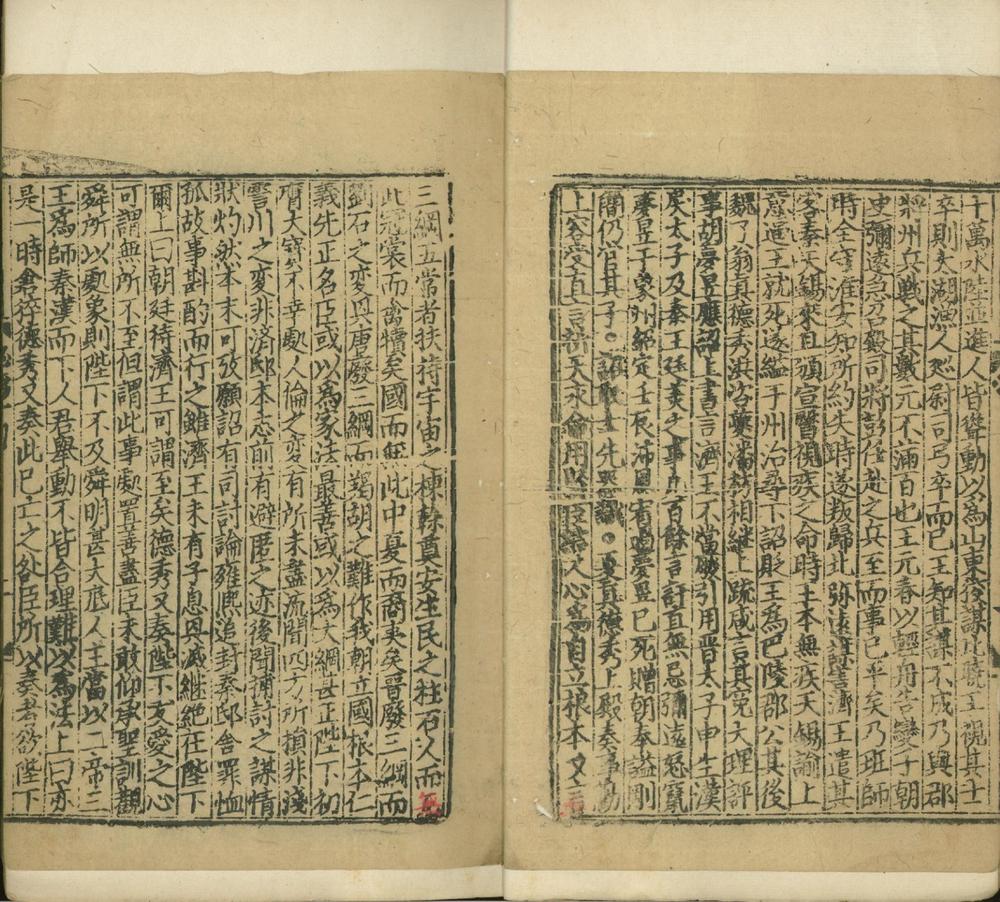 十萬水陸並進人皆聳動以爲山東狡謀比曉王視其士
卒則太湖漁人巡尉司弓卒而已王知其謀不成乃與郡
將州兵戰之其數元不滿百也王元春以輕舟告變于朝
史彌遠急召殿司將彭任赴之兵至而事已平矣乃班師
時全守淮安知所約失時遂叛歸北弥遠濟王遣其
客秦天錫來且頒宣醫視疾之命時王本無疾天錫諭上
意逼王就死遂縊于州治尋下詔貶王爲巴陵郡公其後
魏了翁真德秀洪咨夔潘枋相繼上疏咸言其冤大理評
事胡夢昱應詔上書言濟王不當廢引用晉太子申生漢
戾太子及秦王廷美之事凡百餘言訐直無忌彌遠怒竄
夢昱于象州紹定壬辰沛恩宥過夢昱已死贈朝奉謚剛
簡仍官其子
上容受直言祈天永命用以人心爲自立根本又言
三綱五常者扶持宇宙之棟幹奠安生民之柱石人而無
此冠裳而禽犢矣國而無此中夏而裔夷矣晉廢三綱而
劉石之變興唐廢三綱而羯胡之難作我朝立國根本仁
義先正名臣或以爲家法最善或以爲大綱甚正陛下初
膺大寶不幸處人倫之變有所未盡流聞四方所損非淺
霅川之變非濟邸本志前有避匿之迹後聞捕討之謀情
狀灼然本末可攷願詔有司討論雍熙追封秦邸舍罪恤
孤故事斟酌而行之雖濟王未有子息恩滅継絶在陛下
爾上曰朝廷待濟王可謂至矣德秀又奏陛下友愛之心
可謂無所不至但謂此事處置善盡臣未敢仰承聖訓觀
舜所以處象則陛下不及舜明甚大厎人主當以二帝三
王爲師秦漢而下人君舉動不皆合理難以爲法上曰亦
是一時倉猝德秀又奏此已亡之咎臣所以奏者欲陛下